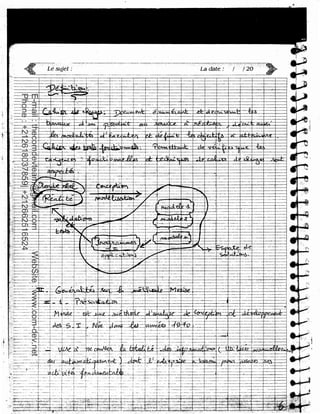 Le sujet : La date : / / 20
Définition
Cahier de charge : Document énumérant et décrivant les
travaux d'un produit ou service à réaliser, décrit aussi
les modalités d'exécuter et définit les objectifs à atteindre
Cahier des tests fonctionnels : Permettant de vérifier que les
exigences fonctionnelles et techniques de cahier de charges sont
respectés
Monde réel
Réalité
Conception
modélisation
modèle 1
modèle 2
modèle n
validation
tests
Programmes
applications
Espace de
solutions
II. Généralités sur la méthode Merise
1 - Présentation
Merise est une méthode d'analyse de conception et développement
des S.I. Née dans les années 1970.
- vise à recouvrir la totalité des informations (Utilisées manuellement
ou automatiquement) dont l'entreprise a besoin pour assurer ses
activités fondamentales
E-mail : thecomdevteam@gmail.com
Phone : +212618037859|+212662516524
WebSite : www.com-dev.net